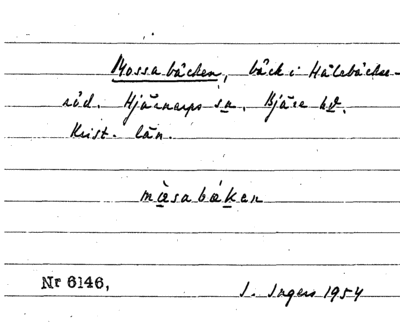 Mossabäcken, bäck i Hålebäcks-
röd. Hjärnarps sn. Bjäre hd.
Krist. län.
mɷsabækən
Nr 6146,
I. Ingers 1954